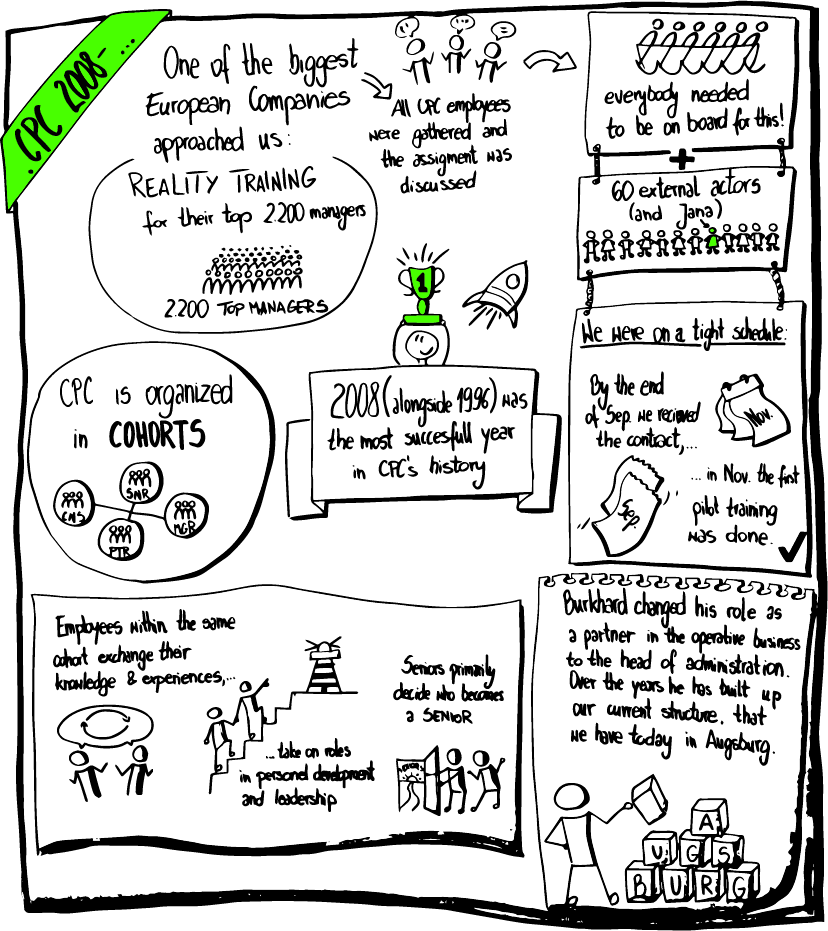 .CPC 2008- ...
One of the biggest
European Companies
approached us:
REALITY TRAINING
for their top 2.200 managers
2.200 TOP MANAGERS
All CPC employees
were gathered and
the assigment was
discussed
everybody needed
to be on board for this!
+
60 external actors
(and Jana)
We were on a tight schedule:
By the end
of Sep. we recieved
the contract,...
Nov.
Sep.
... in Nov. the first
pilot training
was done.
1
2008 (alongside 1996) was
the most succesfull year
in CPC's history
CPC is organized
in COHORTS
SNR
CNS
MGR
PTR
Employees within the same
cohort exchange their
knowledge & experiences,...
...take on roles
in personel development
and leadership
Seniors primarily
decide who becomes
a SENIOR
Burkhard changed his role as
a partner in the operative business
to the head of administration.
Over the years he has built up
our current structure, that
we have today in Augsburg.
A
U G S
B U R G